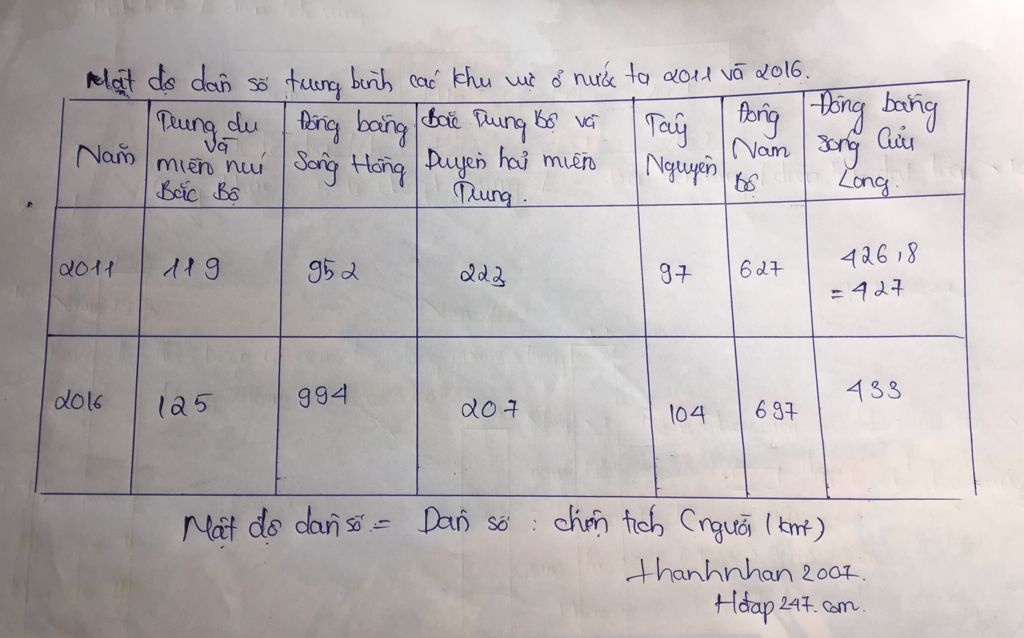 Mật độ dân số trung bình các khu vực ở nước ta 2011 và 2016.
Năm
Trung du
và
miền núi
Bắc Bộ
Đồng bằng
Sông Hồng
Bắc Trung Bộ và
Duyên hải miền
Trung.
Tây
Nguyên
Đông
Nam
Bộ
Đồng bằng
sông Cửu
Long.
2011
119
952
223
97
627
426,8
= 427
2016
125
994
207
104
697
433
Mật độ dân số = Dân số : diện tích (người / km²)
thanhnhan2007.
Hđap247.com.